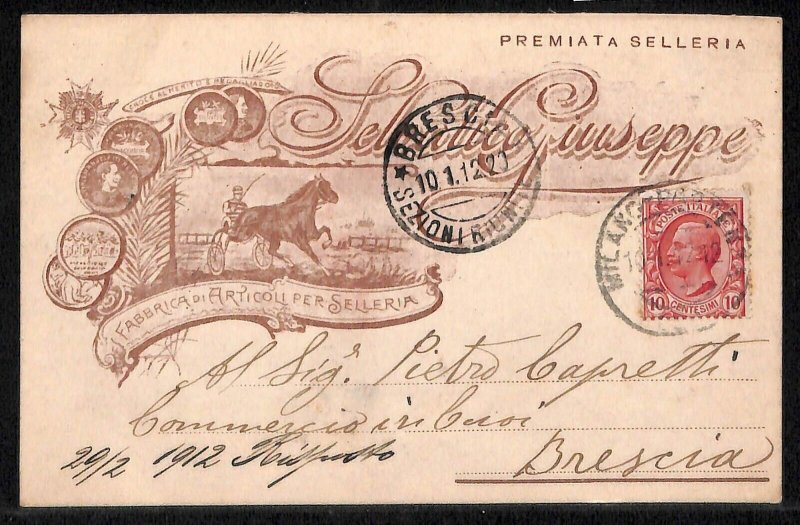 PREMIATA SELLERIA
CROCE AL MERITO E MEDAGLIA D'ORO
Giuseppe
BRESCIA
10.1.12.20
MILANO
POSTE ITALIANE
10 CENTESIMI 10
FABBRICA DI ARTICOLI PER SELLERIA
Al Sigr. Pietro Capretti
Commercio in Cuoi
29/2 1912 Risposto
Brescia